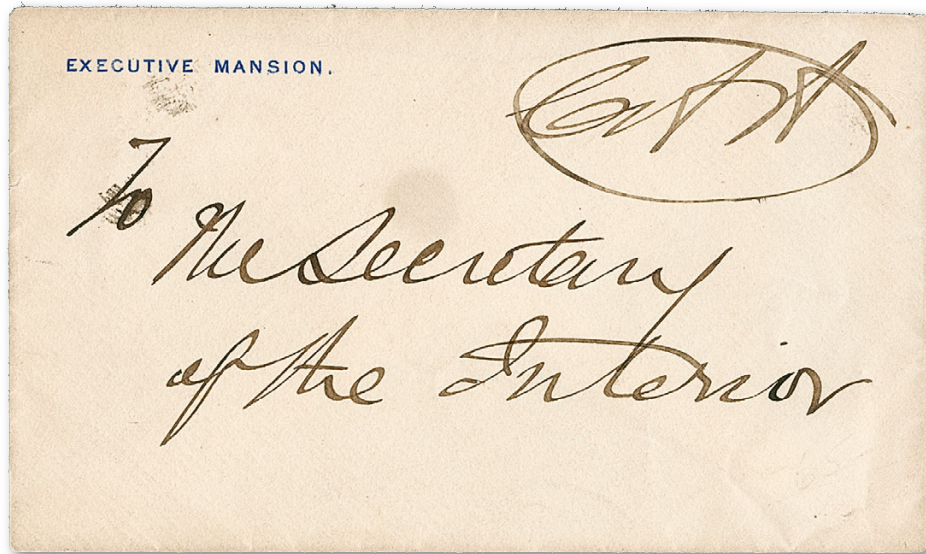 EXECUTIVE MANSION.
To
The Secretary
of the Interior